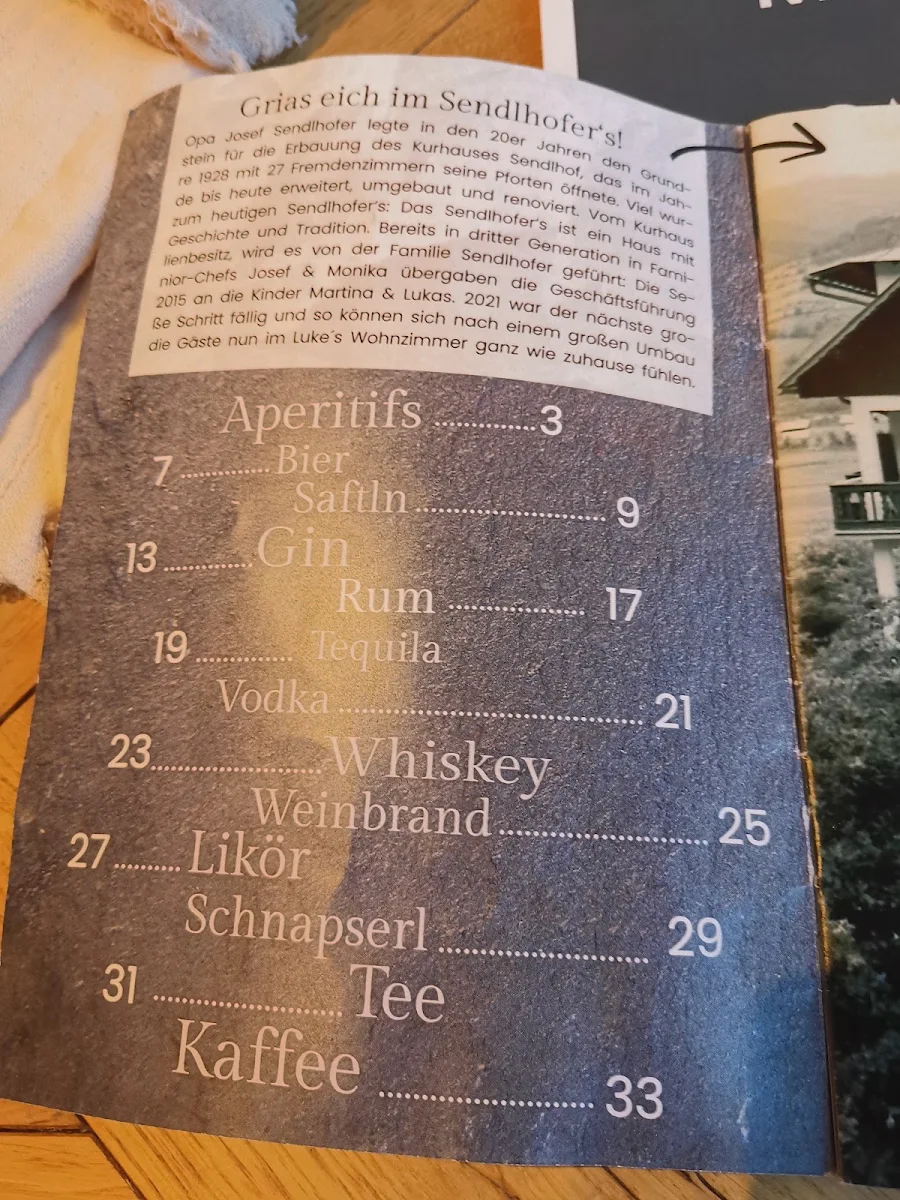 Grias eich im Sendlhofer's!
Opa Josef Sendlhofer legte in den 20er Jahren den Grund-
stein für die Erbauung des Kurhauses Sendlhof, das im Jah-
re 1928 mit 27 Fremdenzimmern seine Pforten öffnete. Viel wur-
de bis heute erweitert, umgebaut und renoviert. Vom Kurhaus
zum heutigen Sendlhofer's: Das Sendlhofer's ist ein Haus mit
Geschichte und Tradition. Bereits in dritter Generation in Fami-
lienbesitz, wird es von der Familie Sendlhofer geführt: Die Se-
nior-Chefs Josef & Monika übergaben die Geschäftsführung
2015 an die Kinder Martina & Lukas. 2021 war der nächste gro-
ße Schritt fällig und so können sich nach einem großen Umbau
die Gäste nun im Luke´s Wohnzimmer ganz wie zuhause fühlen.
Aperitifs ............... 3
7 ............... Bier
Saftln ............... 9
13 ............... Gin
Rum ............... 17
19 ............... Tequila
Vodka ............... 21
23 ............... Whiskey
Weinbrand ............... 25
27 ............... Likör
Schnapserl ............... 29
31 ............... Tee
Kaffee ............... 33